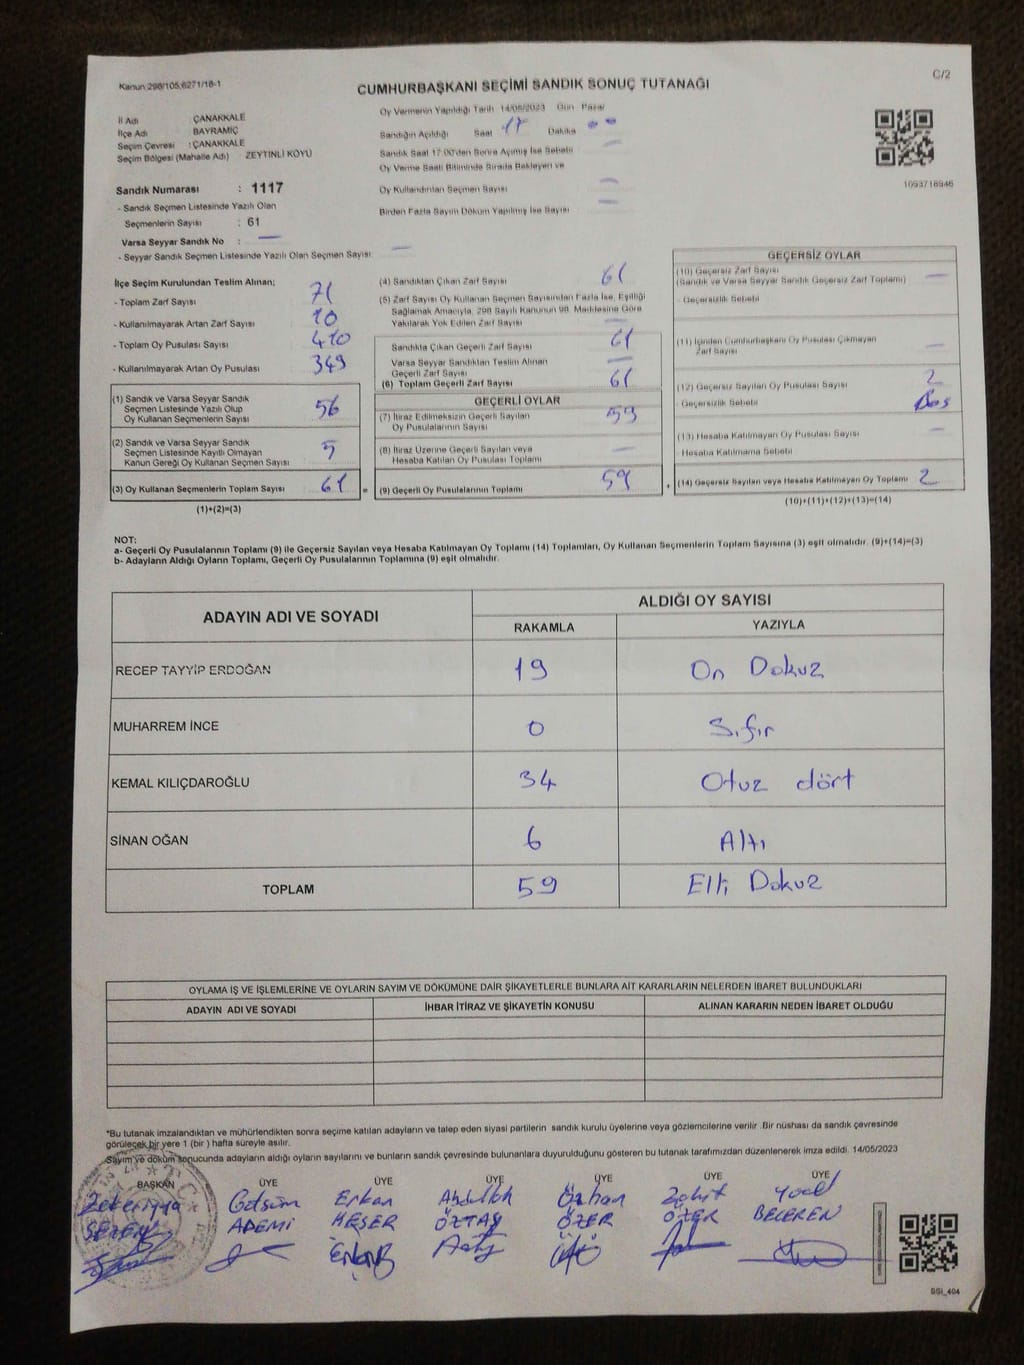 Kanun 298/105,6271/18-1
C/2
CUMHURBAŞKANI SEÇİMİ SANDIK SONUÇ TUTANAĞI
İl Adı ÇANAKKALE
İlçe Adı BAYRAMİÇ
Seçim Çevresi : ÇANAKKALE
Seçim Bölgesi (Mahalle Adı) ZEYTİNLİ KÖYÜ
Oy Vermenin Yapıldığı Tarih 14/05/2023 Gün Pazar
Sandığın Açıldığı Saat 17 Dakika
Sandık Saat 17:00'den Sonra Açılmış İse Sebebi
Oy Verme Saati Bitiminde Sırada Bekleyen ve
Oy Kullandırılan Seçmen Sayısı
Birden Fazla Sayım Döküm Yapılmış İse Sayısı
1093716946
Sandık Numarası : 1117
- Sandık Seçmen Listesinde Yazılı Olan
Seçmenlerin Sayısı : 61
Varsa Seyyar Sandık No : —
- Seyyar Sandık Seçmen Listesinde Yazılı Olan Seçmen Sayısı: —
İlçe Seçim Kurulundan Teslim Alınan;
- Toplam Zarf Sayısı 71
- Kullanılmayarak Artan Zarf Sayısı 10
- Toplam Oy Pusulası Sayısı 410
- Kullanılmayarak Artan Oy Pusulası 349
(1) Sandık ve Varsa Seyyar Sandık
Seçmen Listesinde Yazılı Olup
Oy Kullanan Seçmenlerin Sayısı 56
(2) Sandık ve Varsa Seyyar Sandık
Seçmen Listesinde Kayıtlı Olmayan
Kanun Gereği Oy Kullanan Seçmen Sayısı 5
(3) Oy Kullanan Seçmenlerin Toplam Sayısı 61 =
(1)+(2)=(3)
(4) Sandıktan Çıkan Zarf Sayısı 61
(5) Zarf Sayısı Oy Kullanan Seçmen Sayısından Fazla İse, Eşitliği
Sağlamak Amacıyla, 298 Sayılı Kanunun 98. Maddesine Göre
Yakılarak Yok Edilen Zarf Sayısı —
Sandıkta Çıkan Geçerli Zarf Sayısı 61
Varsa Seyyar Sandıktan Teslim Alınan
Geçerli Zarf Sayısı —
(6) Toplam Geçerli Zarf Sayısı 61
GEÇERLİ OYLAR
(7) İtiraz Edilmeksizin Geçerli Sayılan
Oy Pusulalarının Sayısı 59
(8) İtiraz Üzerine Geçerli Sayılan veya
Hesaba Katılan Oy Pusulası Toplamı —
(9) Geçerli Oy Pusulalarının Toplamı 59 +
GEÇERSİZ OYLAR
(10) Geçersiz Zarf Sayısı —
(Sandık ve Varsa Seyyar Sandık Geçersiz Zarf Toplamı)
- Geçersizlik Sebebi
(11) İçinden Cumhurbaşkanı Oy Pusulası Çıkmayan
Zarf Sayısı —
(12) Geçersiz Sayılan Oy Pusulası Sayısı 2
- Geçersizlik Sebebi Boş
(13) Hesaba Katılmayan Oy Pusulası Sayısı —
- Hesaba Katılmama Sebebi
(14) Geçersiz Sayılan veya Hesaba Katılmayan Oy Toplamı 2
(10)+(11)+(12)+(13)=(14)
NOT:
a- Geçerli Oy Pusulalarının Toplamı (9) ile Geçersiz Sayılan veya Hesaba Katılmayan Oy Toplamı (14) Toplamları, Oy Kullanan Seçmenlerin Toplam Sayısına (3) eşit olmalıdır. (9)+(14)=(3)
b- Adayların Aldığı Oyların Toplamı, Geçerli Oy Pusulalarının Toplamına (9) eşit olmalıdır.
ADAYIN ADI VE SOYADI
ALDIĞI OY SAYISI
RAKAMLA YAZIYLA
RECEP TAYYİP ERDOĞAN 19 On Dokuz
MUHARREM İNCE 0 Sıfır
KEMAL KILIÇDAROĞLU 34 Otuz dört
SİNAN OĞAN 6 Altı
TOPLAM 59 Elli Dokuz
OYLAMA İŞ VE İŞLEMLERİNE VE OYLARIN SAYIM VE DÖKÜMÜNE DAİR ŞİKAYETLERLE BUNLARA AİT KARARLARIN NELERDEN İBARET BULUNDUKLARI
ADAYIN ADI VE SOYADI İHBAR İTİRAZ VE ŞİKAYETİN KONUSU ALINAN KARARIN NEDEN İBARET OLDUĞU
*Bu tutanak imzalandıktan ve mühürlendikten sonra seçime katılan adayların ve talep eden siyasi partilerin sandık kurulu üyelerine veya gözlemcilerine verilir .Bir nüshası da sandık çevresinde
görülecek bir yere 1 (bir ) hafta süreyle asılır.
Sayım ve döküm sonucunda adayların aldığı oyların sayılarını ve bunların sandık çevresinde bulunanlara duyurulduğunu gösteren bu tutanak tarafımızdan düzenlenerek imza edildi. 14/05/2023
BAŞKAN ÜYE ÜYE ÜYE ÜYE ÜYE ÜYE
Zekeriyya Gülsüm Erkan Abdullah Özhan Zahit Yücel
SEZEN ADEMİ HEŞER ÖZTAŞ ÖZER ÖZER BECEREN
SSI_404